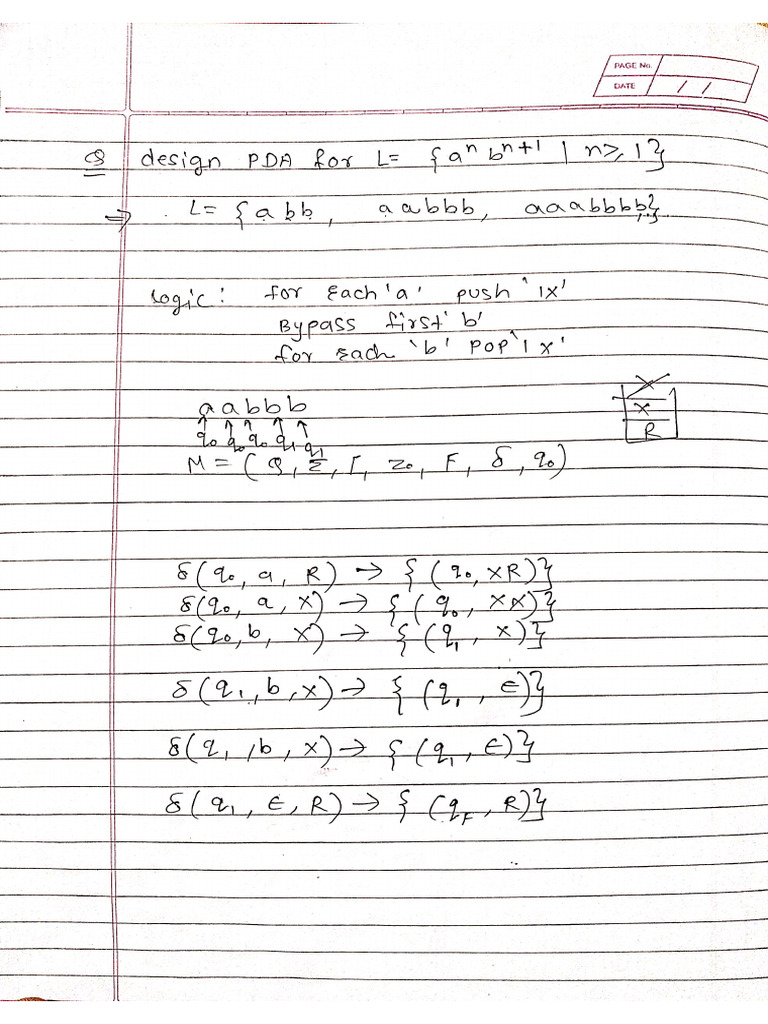 PAGE No.
DATE / /
Q design PDA for L= {aⁿ bⁿ⁺¹ | n≥1}
⇒ L= {abb, aabbb, aaabbbb}
Logic: for each 'a' push '1x'
Bypass first 'b'
for each 'b' pop '1x'
aabbb
↑ ↑ ↑ ↑ ↑
q₀ q₀ q₀ q₁ q₁
x
x
R
M = (Q, Σ, Γ, z₀, F, δ, q₀)
δ(q₀, a, R) → {(q₀, XR)}
δ(q₀, a, X) → {(q₀, XX)}
δ(q₀, b, X) → {(q₁, X)}
δ(q₁, b, X) → {(q₁, ε)}
δ(q₁, b, X) → {(q₁, ε)}
δ(q₁, ε, R) → {(q_F, R)}